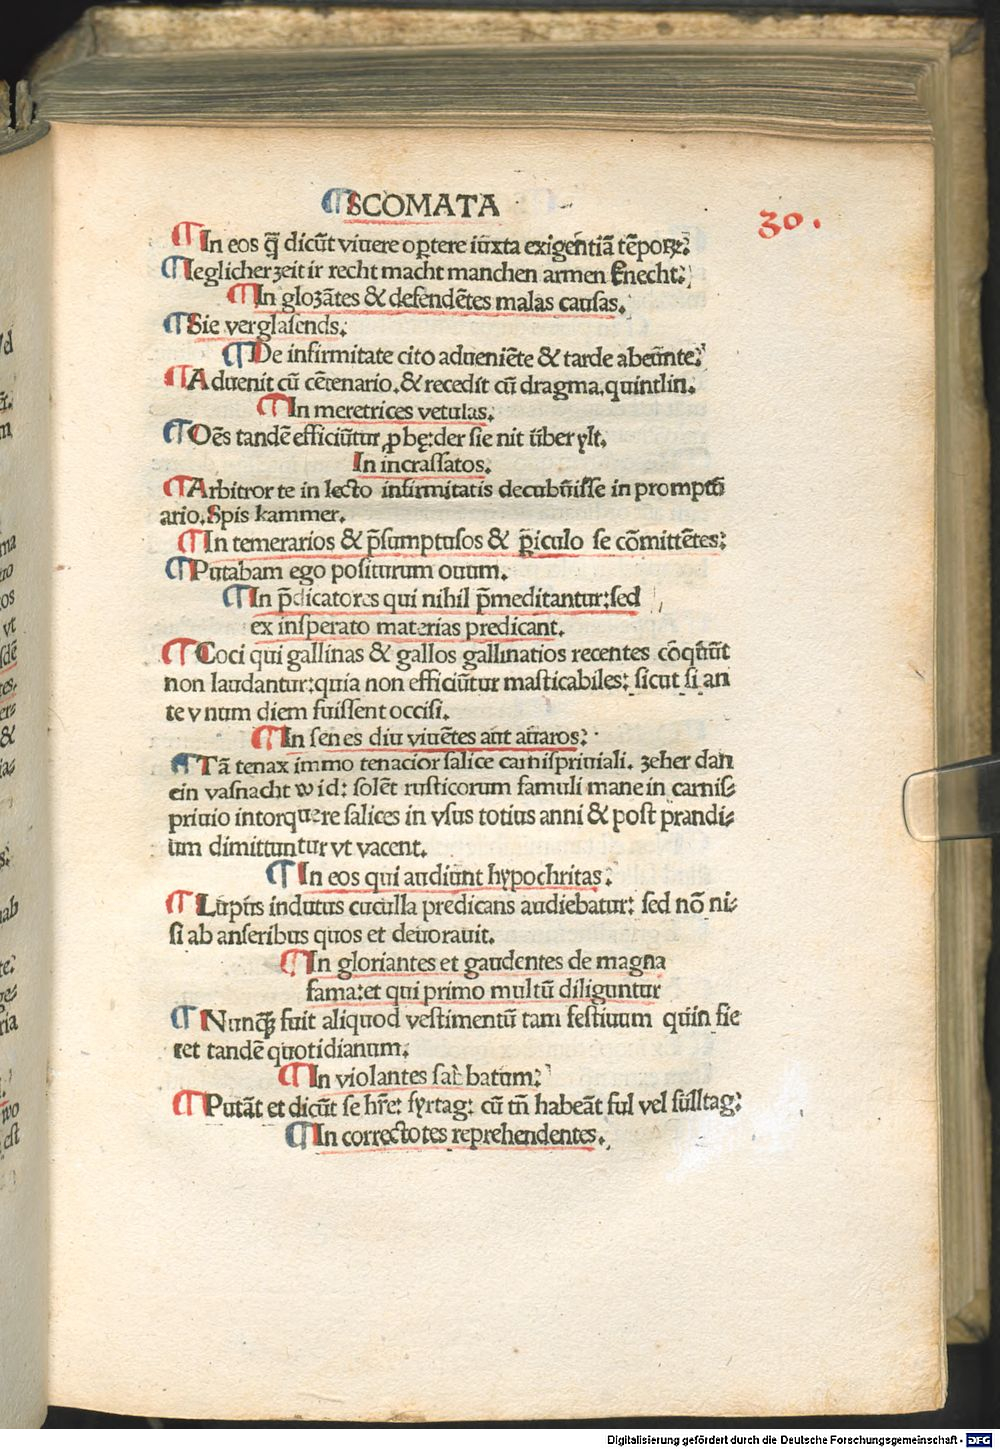 SCOMATA
30.
In eos q̃ dicũt viuere oꝑtere iuxta exigentiã tẽporꝝ:
Ieglicher zeit ir recht macht manchen armen knecht:
In glozãtes & defendẽtes malas causas.
Sie verglasends.
De infirmitate cito adueniẽte & tarde abeũnte:
Aduenit cũ cẽtenario. & recedit cũ dragma. quintlin.
In meretrices vetulas.
Oẽs tandẽ efficiũtur ꝓbę: der sie nit über ylt.
In incrassatos.
Arbitror te in lecto infirmitatis decubuisse in prompt
ario. Spis kammer.
In temerarios & p̃sumptuosos & ꝑiculo se cõmittẽtes:
Putabam ego positurum ouum.
In p̃dicatores qui nihil p̃meditantur: sed
ex insperato materias predicant.
Coci qui gallinas & gallos gallinatios recentes cõquũt
non laudantur: quia non efficiũtur masticabiles: sicut si an
te vnum diem fuissent occisi.
In senes diu viuẽtes aut auaros:
Tã tenax immo tenacior salice carnispriuiali. zeher dan
ein vasnacht wid: solẽt rusticorum famuli mane in carnis⸗
priuio intorquere salices in vsus totius anni & post prandi⸗
um dimittuntur vt vacent.
In eos qui audiunt hypochritas.
Lupus indutus cuculla predicans audiebatur: sed nõ ni⸗
si ab anseribus quos et deuorauit.
In gloriantes et gaudentes de magna
fama: et qui primo multũ diliguntur
Nunq̃ꝫ fuit aliquod vestimentũ tam festiuum quin fie
ret tandẽ quotidianum.
In violantes sabbatum:
Putãt et dicũt se hr̃e: fyrtag: cũ tñ habeãt ful vel fülltag:
In correctores reprehendentes.
Digitalisierung gefördert durch die Deutsche Forschungsgemeinschaft - DFG